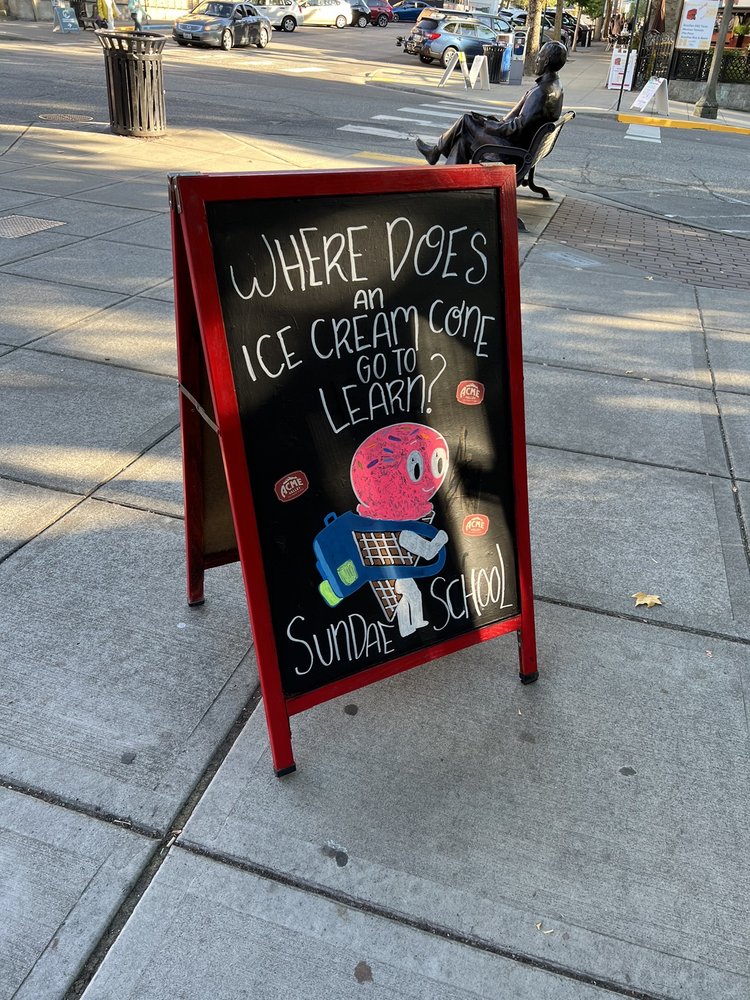 WHERE DOES
an
ICE CREAM CONE
GO TO
LEARN?
ACME
ACME
ACME
SUNDAE SCHOOL